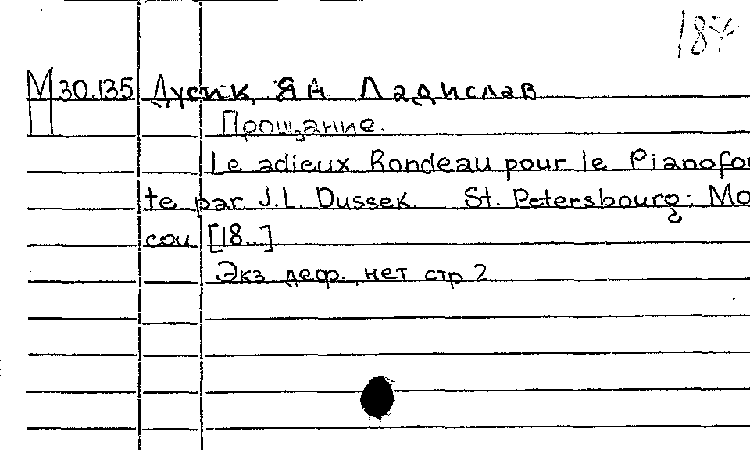 М30.135 Дусик, Ян Ладислав
П Прощание.
Le adieux Rondeau pour le Pianofor
te par J.L. Dussek. St. Petersbourg; Mo
cou [18..]
Экз деф., нет стр 2